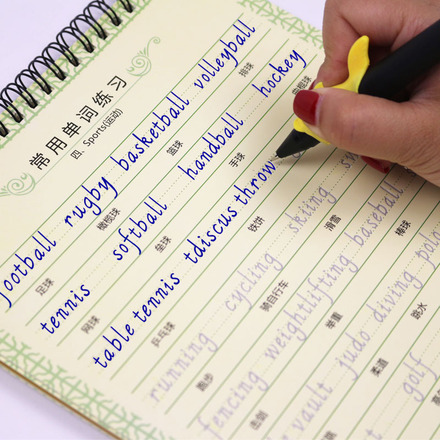 常用单词练习
四、Sports(运动)
football rugby basketball volleyball
足球 橄榄球 篮球 排球
tennis softball handball hockey
网球 垒球 手球
table tennis tdiscus throw
乒乓球 铁饼
running cycling skiing sw
跑步 骑自行车 滑雪
fencing weightlifting baseball
击剑 举重 棒球
vault judo diving
柔道 跳水
golf